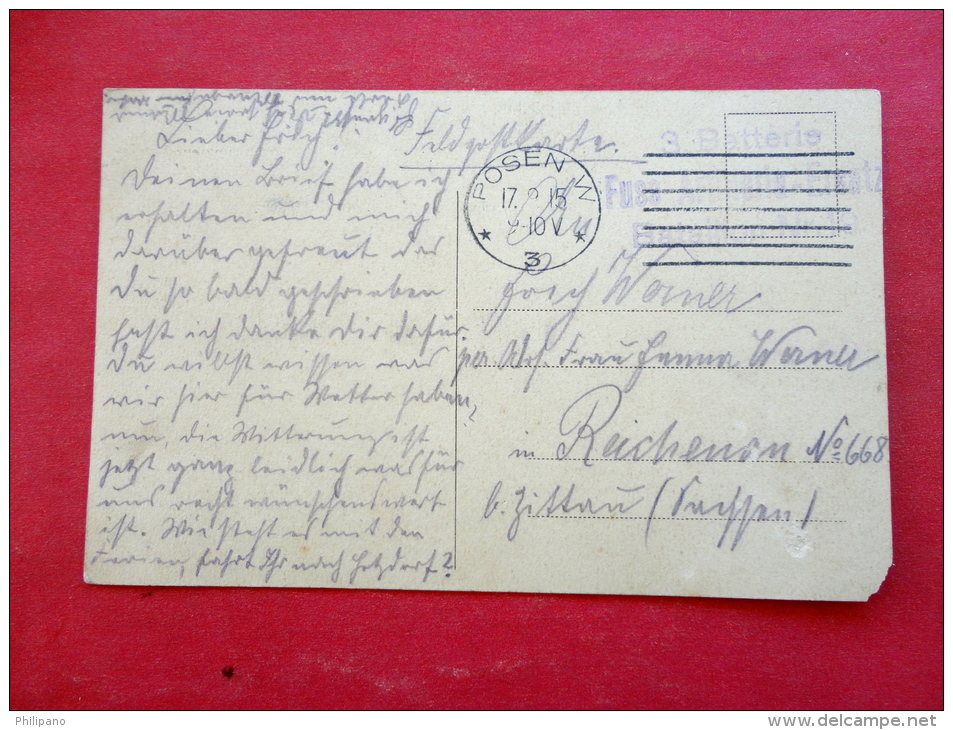 Lieber Erich!
Deinen Brief habe ich
erhalten und mich
darüber gefreut das
Du so bald geschrieben
hast ich danke Dir dafür.
Du willst wissen was
wir hier für Wetter haben,
nun, die Witterung ist
jetzt ganz leidlich was für
uns recht wünschenswert
ist. Wie steht es mit den
Ferien, fahrt Ihr nach Hetzdorf?
Feldpostkarte.
POSEN W
17. 15
-10 V
3
3. Batterie
Fuss Ersatz
An
Erich Werner
per Adr. Frau Emma Werner
in Reichenau No 668
b. Zittau (Sachsen)
Philipano
www.delcampe.net